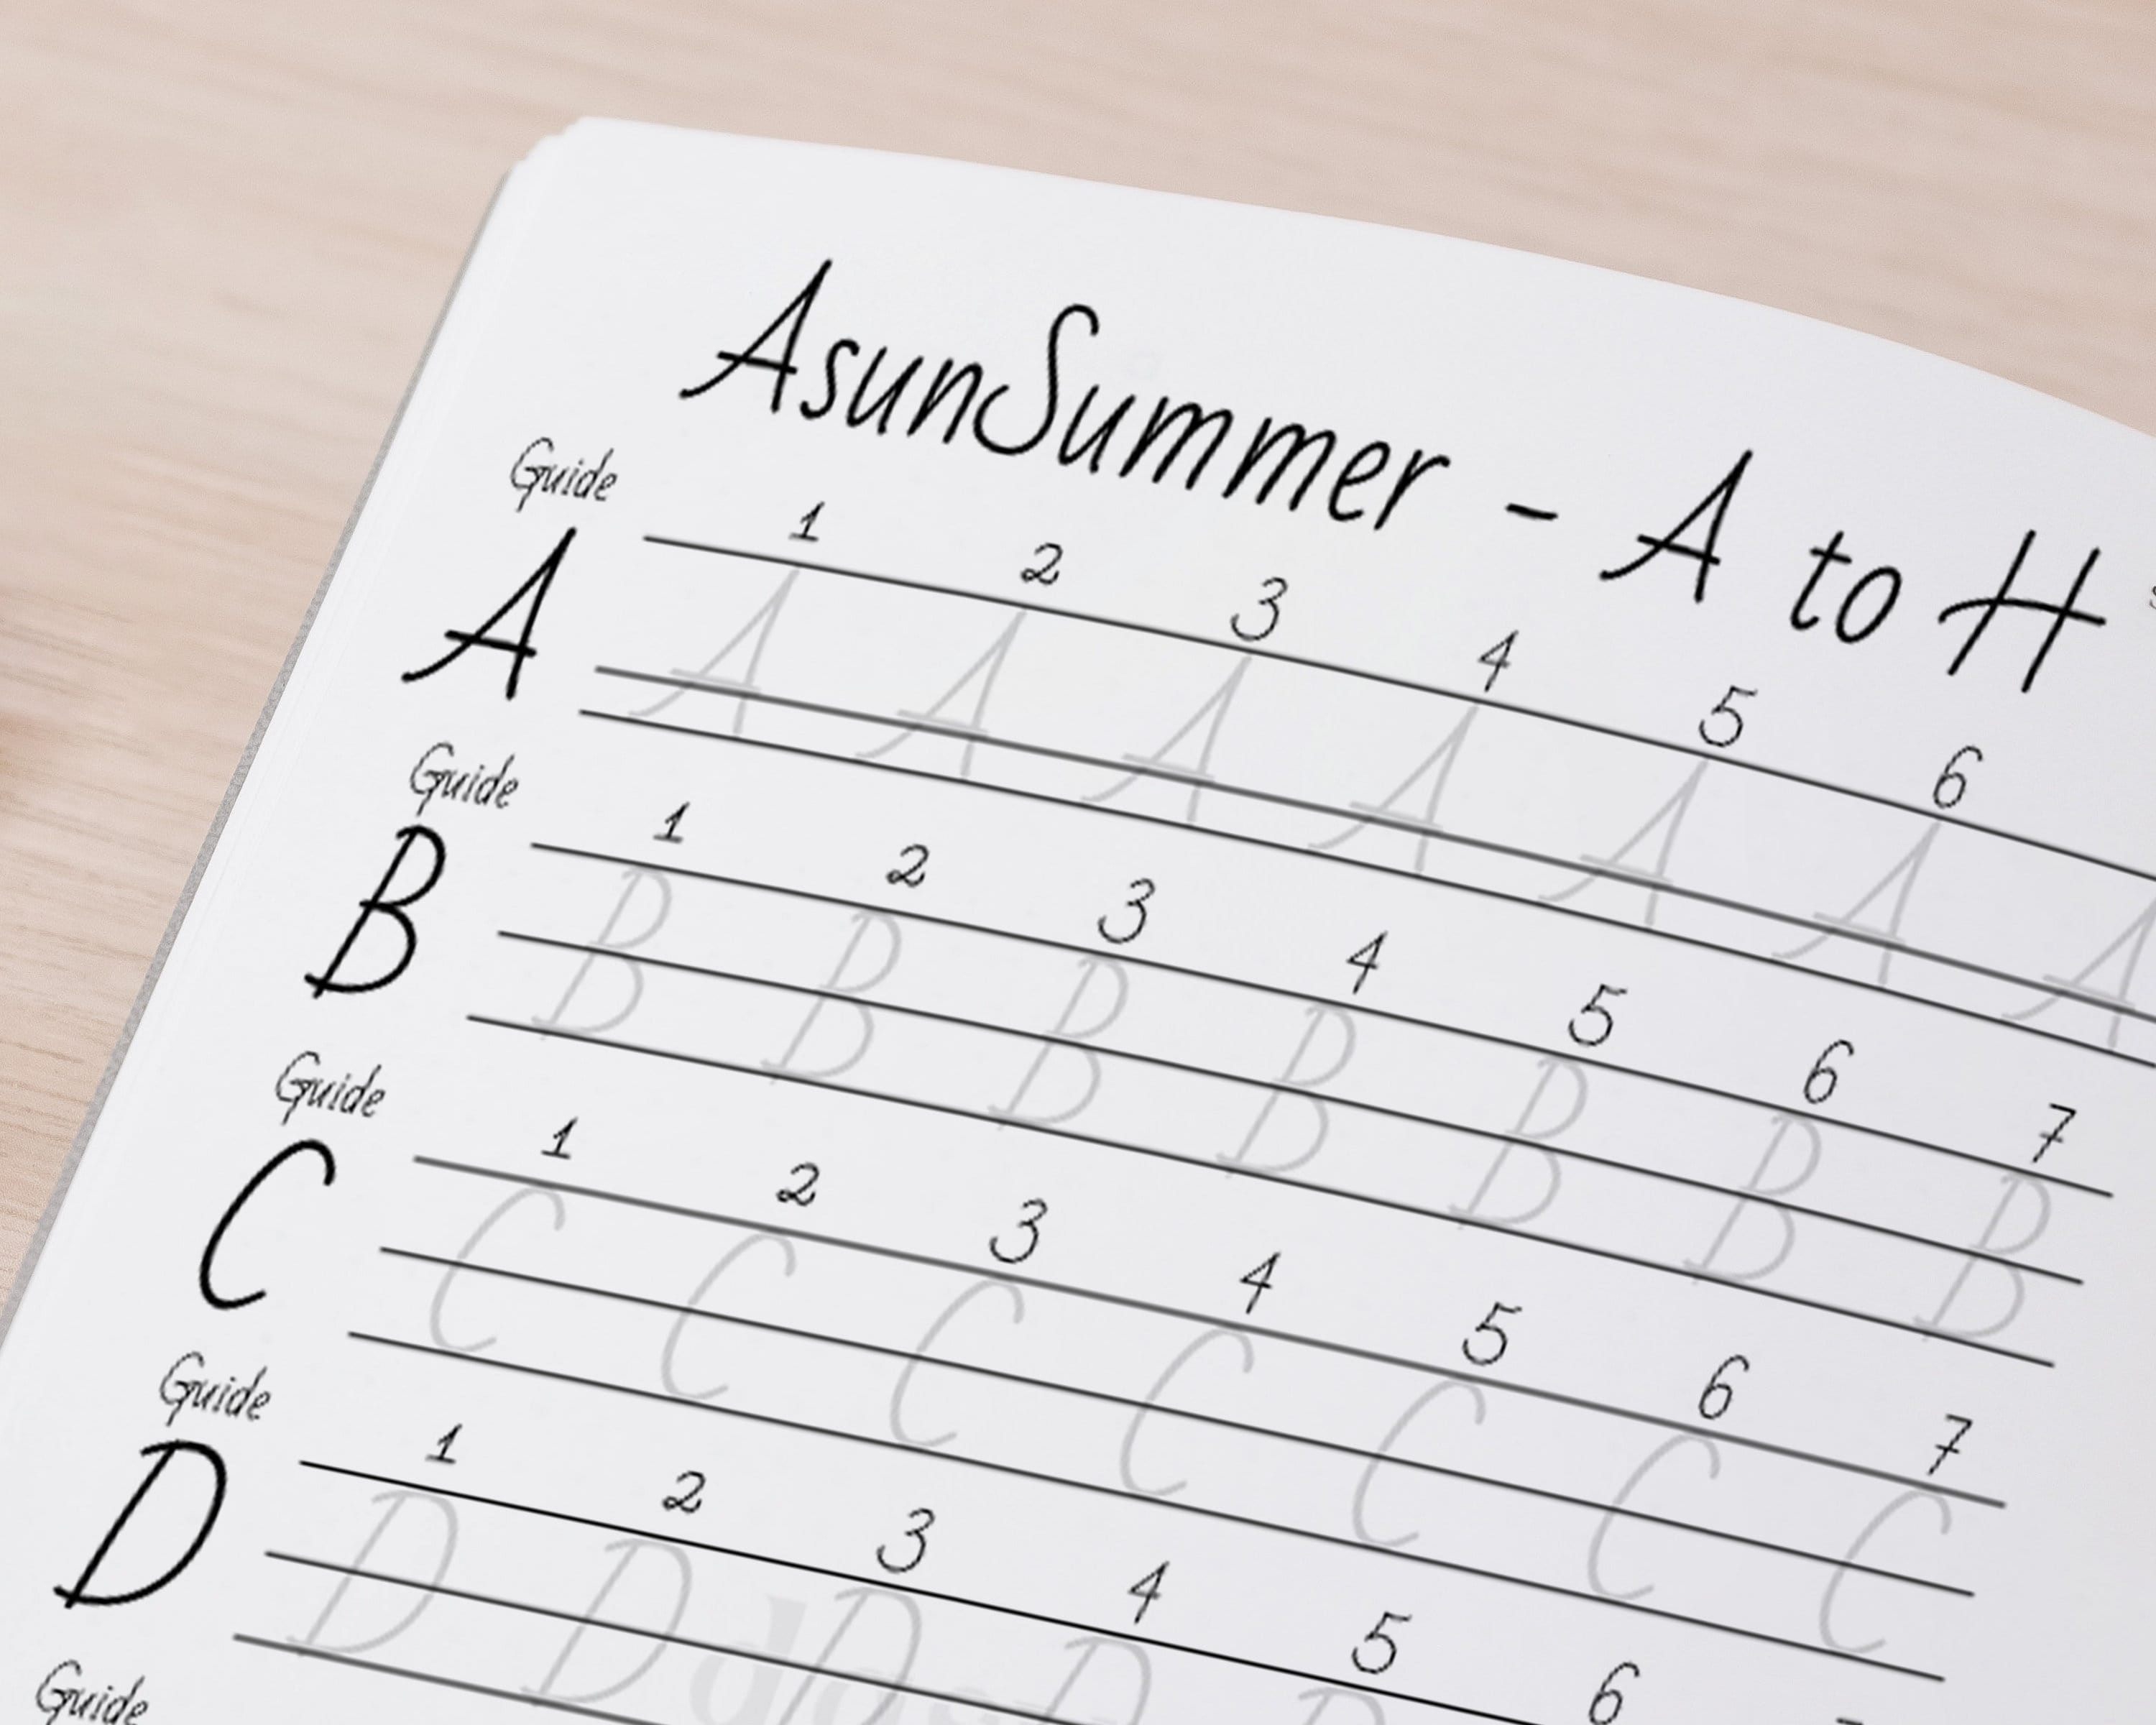 AsunSummer - A to H
Guide
1 2 3 4 5 6
A A A A A A A A
Guide
1 2 3 4 5 6 7
B B B B B B B B
Guide
1 2 3 4 5 6 7
C C C C C C C C
Guide
1 2 3 4 5 6
D D D D D
Guide